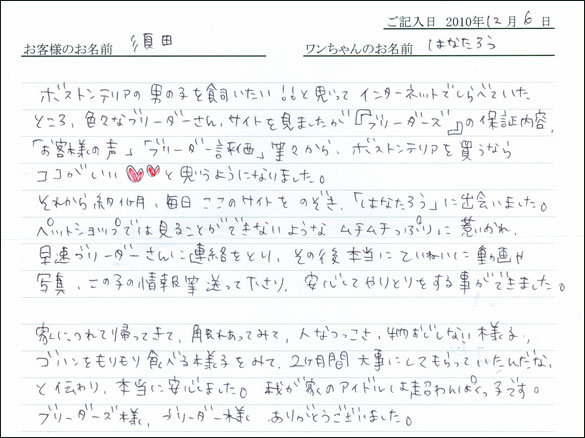 ご記入日 2010年12月6日
お客様のお名前 須田 ワンちゃんのお名前 はなたろう
ボストンテリアの男の子を飼いたい!!と思って インターネットでしらべていた
ところ、色々なブリーダーさん、サイトを見ましたが『ブリーダーズ』の保証内容、
「お客様の声」「ブリーダー評価」等々から、ボストンテリアを買うなら
ココがいい♥♥と思うようになりました。
それから約1ヶ月、毎日ここのサイトをのぞき、「はなたろう」に出会いました。
ペットショップでは見ることができないような ムチムチっぷりに惹かれ、
早速ブリーダーさんに連絡をとり、その後本当にていねいに動画や
写真、この子の情報等送って下さり、安心してやりとりをする事ができました。
家につれて帰ってきて、触れあってみて、人なつっこさ、物おじしない様子、
ゴハンをもりもり食べる様子をみて、2ヶ月間大事にしてもらっていたんだな、
と伝わり、本当に安心しました。我が家のアイドルは超わんぱくっ子です。
ブリーダーズ様、ブリーダー様、ありがとうございました。